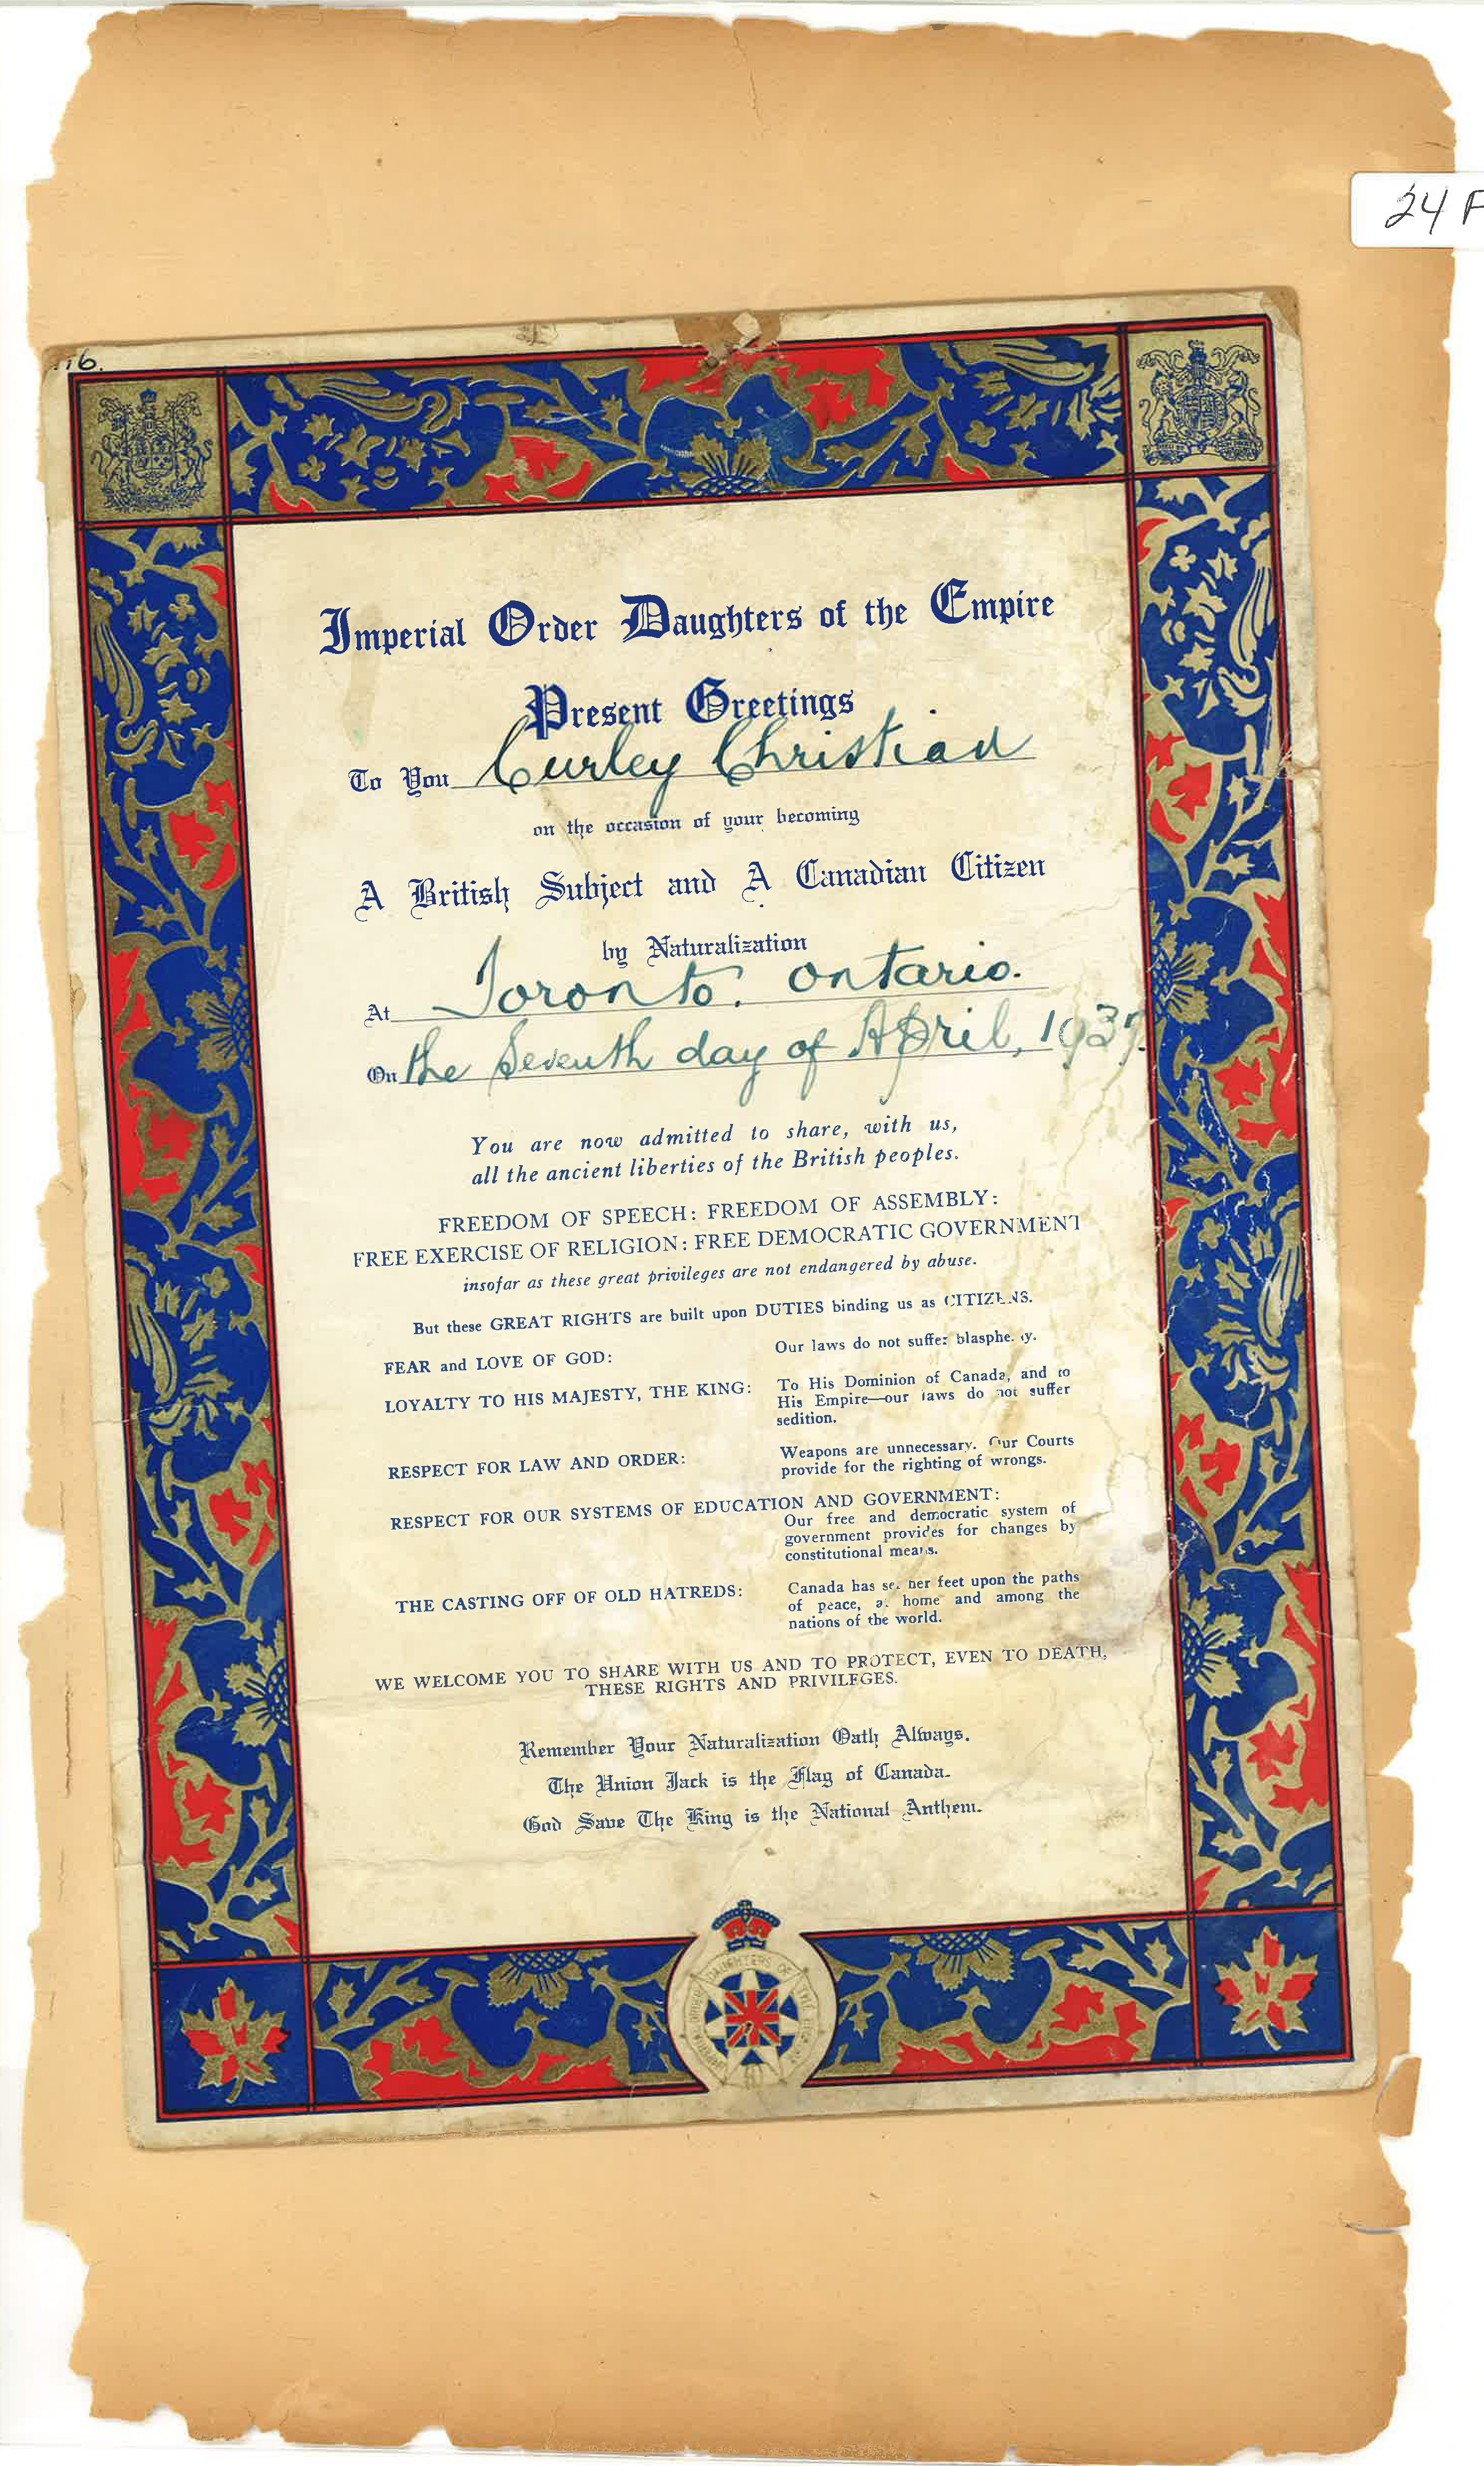 24 F
116.
Imperial Order Daughters of the Empire
Present Greetings
To You Curley Christian
on the occasion of your becoming
A British Subject and A Canadian Citizen
by Naturalization
At Toronto. Ontario.
On the Seventh day of April, 1937.
You are now admitted to share, with us,
all the ancient liberties of the British peoples.
FREEDOM OF SPEECH: FREEDOM OF ASSEMBLY:
FREE EXERCISE OF RELIGION: FREE DEMOCRATIC GOVERNMENT
insofar as these great privileges are not endangered by abuse.
But these GREAT RIGHTS are built upon DUTIES binding us as CITIZENS.
FEAR and LOVE OF GOD: Our laws do not suffer blasphemy.
LOYALTY TO HIS MAJESTY, THE KING: To His Dominion of Canada, and to
His Empire—our laws do not suffer
sedition.
RESPECT FOR LAW AND ORDER: Weapons are unnecessary. Our Courts
provide for the righting of wrongs.
RESPECT FOR OUR SYSTEMS OF EDUCATION AND GOVERNMENT:
Our free and democratic system of
government provides for changes by
constitutional means.
THE CASTING OFF OF OLD HATREDS: Canada has set her feet upon the paths
of peace, at home and among the
nations of the world.
WE WELCOME YOU TO SHARE WITH US AND TO PROTECT, EVEN TO DEATH,
THESE RIGHTS AND PRIVILEGES.
Remember Your Naturalization Oath Always.
The Union Jack is the Flag of Canada.
God Save The King is the National Anthem.
DAUGHTERS OF THE